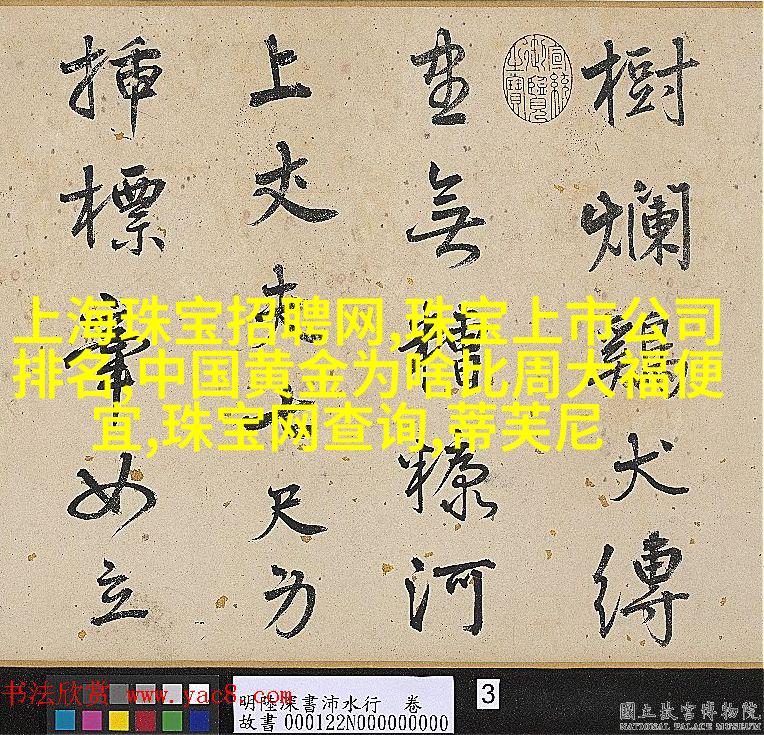 樹爛鷄犬縛
宣統
御覽
之寶
坐無糟糠河
上丈夫尺
插標如立
上海珠宝招聘网,珠宝上市公司
排名,中国黄金为啥比周大福便
宜,珠宝网查询,蒂芙尼
书法欣赏 www.yac8.com
明陸深書沛水行 卷
故書000122N000000000
3
國立故宮博物院
NATIONAL PALACE MUSEUM